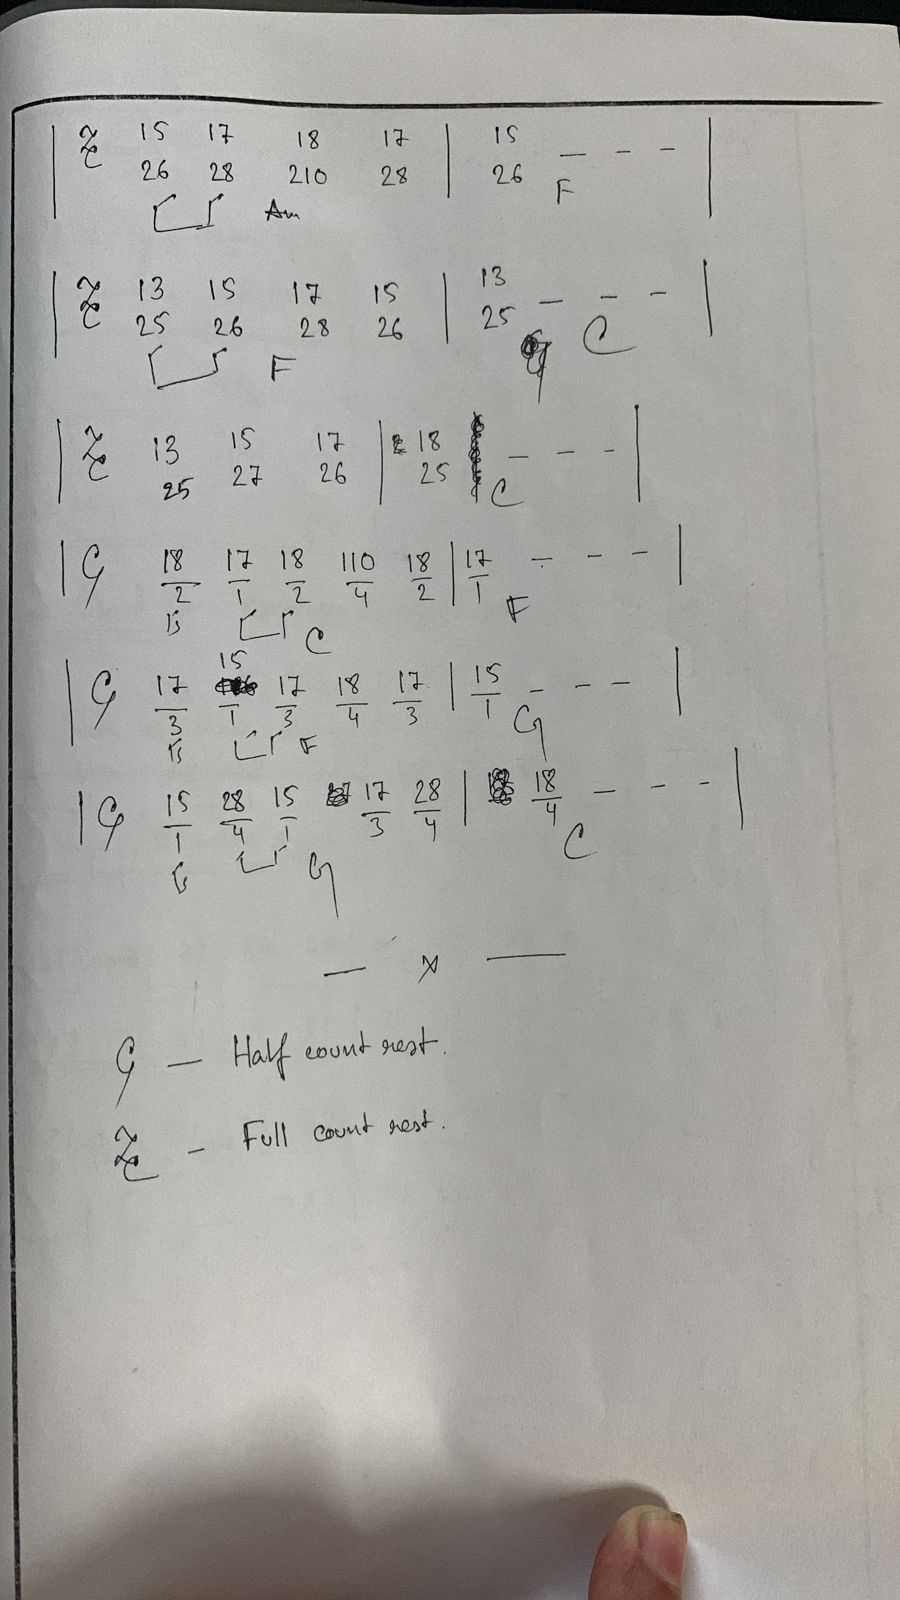 | 𝄽 15 17 18 17 | 15 – – – |
26 28 210 28 26
Am F
| 𝄽 13 15 17 15 | 13 – – – |
25 26 28 26 25
F C
| 𝄽 13 15 17 | 18 – – – |
25 27 26 25
C
| 𝄾 18 17 18 110 18 | 17 – – – |
2 1 2 4 2 1
C F
15
| 𝄾 17 17 18 17 | 15 – – – |
3 1 3 4 3 1
F G
| 𝄾 15 28 15 17 28 | 18 – – – |
1 4 1 3 4 4
G C
— x —
𝄾 – Half count rest.
𝄽 – Full count rest.